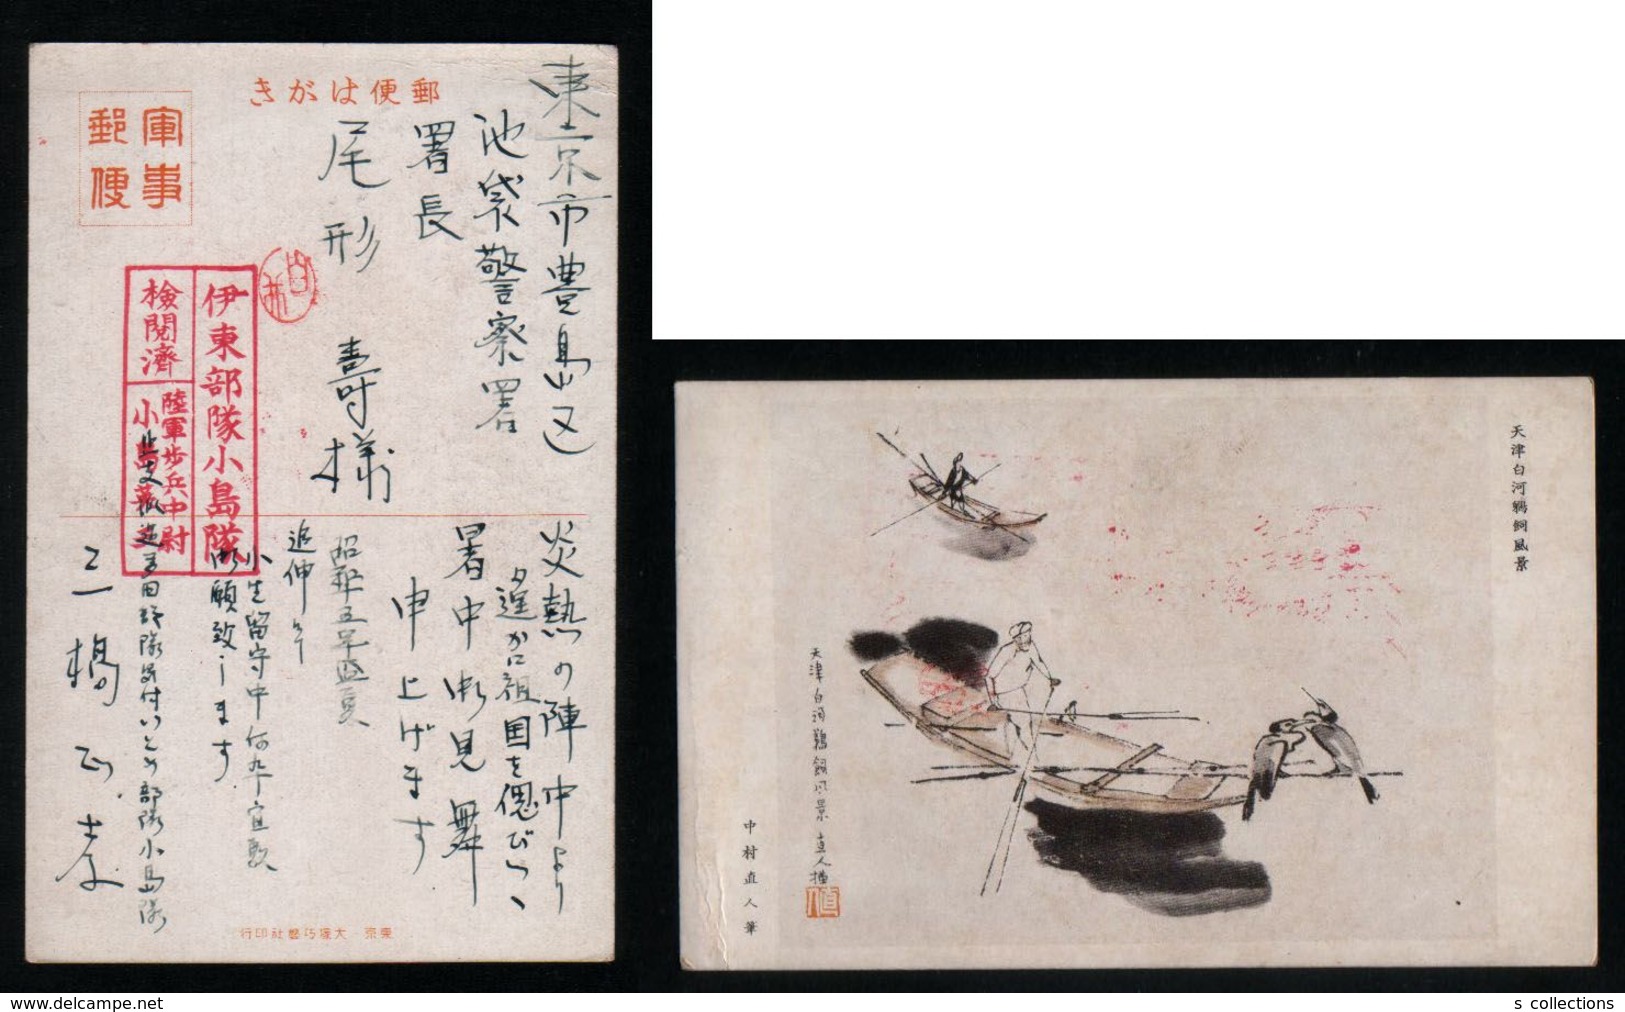 郵便はがき
軍事
郵便
東京市豊島区
池袋警察署
署長
尾形 壽様
伊東部隊小島隊
検閲濟
陸軍歩兵中尉
炎熱の陣中より
夕遥かに祖国を偲びつゝ
暑中御見舞
申上げます
盛夏
追伸
小生留守中何卒宜敷
御願致します
部隊小島隊
東京 大塚巧藝社印行
天津白河鵜飼風景
天津白河鵜飼風景 直人描
中村直人筆
www.delcampe.net
s collections